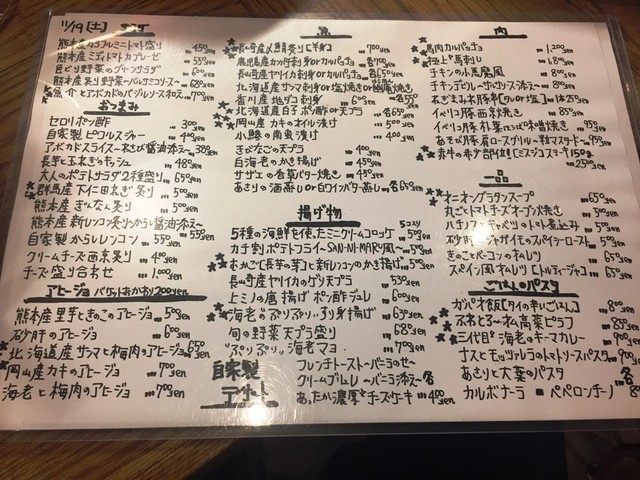 11/19 [土] サラダ
熊本産カラフルミニトマト盛り 450yen
熊本産ミディトマトカプレーゼ
色どり野菜のグリーンサラダ
熊本産炙り野菜〜バルサミコソース〜 680yen
魚介とアボカドのバジルソース和え 700yen
おつまみ
セロリポン酢 300yen
自家製ピクルスジャー 400yen
アボカドスライス〜わさび醤油添え〜 380yen
長芋と玉ねぎのキッシュ 480yen
大人のポテトサラダ2種盛り 650yen
群馬産下仁田ねぎ炙り 500yen
熊本産ぎんなん炙り 500yen
熊本産新レンコン炙り〜からし醤油添え〜
自家製からしレンコン 550yen
クリームチーズ西京炙り 400yen
チーズ盛り合わせ 1,000yen
アヒージョ バケットおかわり200yen
熊本産里芋ときのこのアヒージョ 500yen
砂肝のアヒージョ 600yen
北海道産サンマと梅肉のアヒージョ 650yen
岡山産カキのアヒージョ 700yen
海老と梅肉のアヒージョ 700yen
魚
長崎産〆鯖炙り[半身] 700yen
鹿児島産カンパチ刺身orカルパッチョ 各700yen
長崎産ヤイカ刺身orカルパッチョ 各650yen
北海道産サンマ刺身or塩焼きor幽庵焼き
香川産地ダコ刺身
北海道産白子ポン酢or天プラ 各650yen
岡山産カキのオイル漬け 500yen
小鯵の南蛮漬け 400yen
きびなごの天プラ 400yen
白海老のかき揚げ 450yen
サザエの香草バター焼き 580yen
あさりの酒蒸しor白ワインバター蒸し 各650yen
揚げ物
5種の海鮮を使ったミニクリームコロッケ 5コ入り 500yen
カチ割ポテトフライ〜SAN・NI・MARU風〜 500yen
むかご[長芋の芽]と新レンコンのかき揚げ 500yen
長崎産ヤイカのゲソ天プラ 530yen
上ミノの唐揚げポン酢ジュレ 600yen
海老のぷりぷりすり身揚げ 630yen
旬の野菜天プラ盛り 680yen
ぷりぷり。海老マヨ 700yen
自家製デザート
フレンチトースト〜バニラのせ〜
クリームブリュレ〜バニラ添え〜 各
あったか濃厚チーズケーキ 400yen
肉
馬肉カルパッチョ 1,200yen
極上馬刺し 1,800yen
チキンの小悪魔風
チキンデビルーサルサソース添え〜
イベリコ豚西京焼き 850yen
イベリコ豚朴葉つつみ味噌焼き 950yen
あそび豚肩ロースグリル〜粒マスタード〜 950yen
一品
オニオングラタンスープ 650yen
丸ごとトマトチーズオーブン焼き 500yen
きのことベーコンのオムレツ
スペイン風オムレツ[トルティージャ]
ごはんのパスタ
ガパオ飯[タイの辛いごはん] 800yen
ふわとろ〜松高菜ピラフ 850yen
三代目海老のキーマカレー 900yen
ナスとモッツァレラのトマトソースパスタ 900yen
あさりと大葉のパスタ 各
カルボナーラ ペペロンチーノ